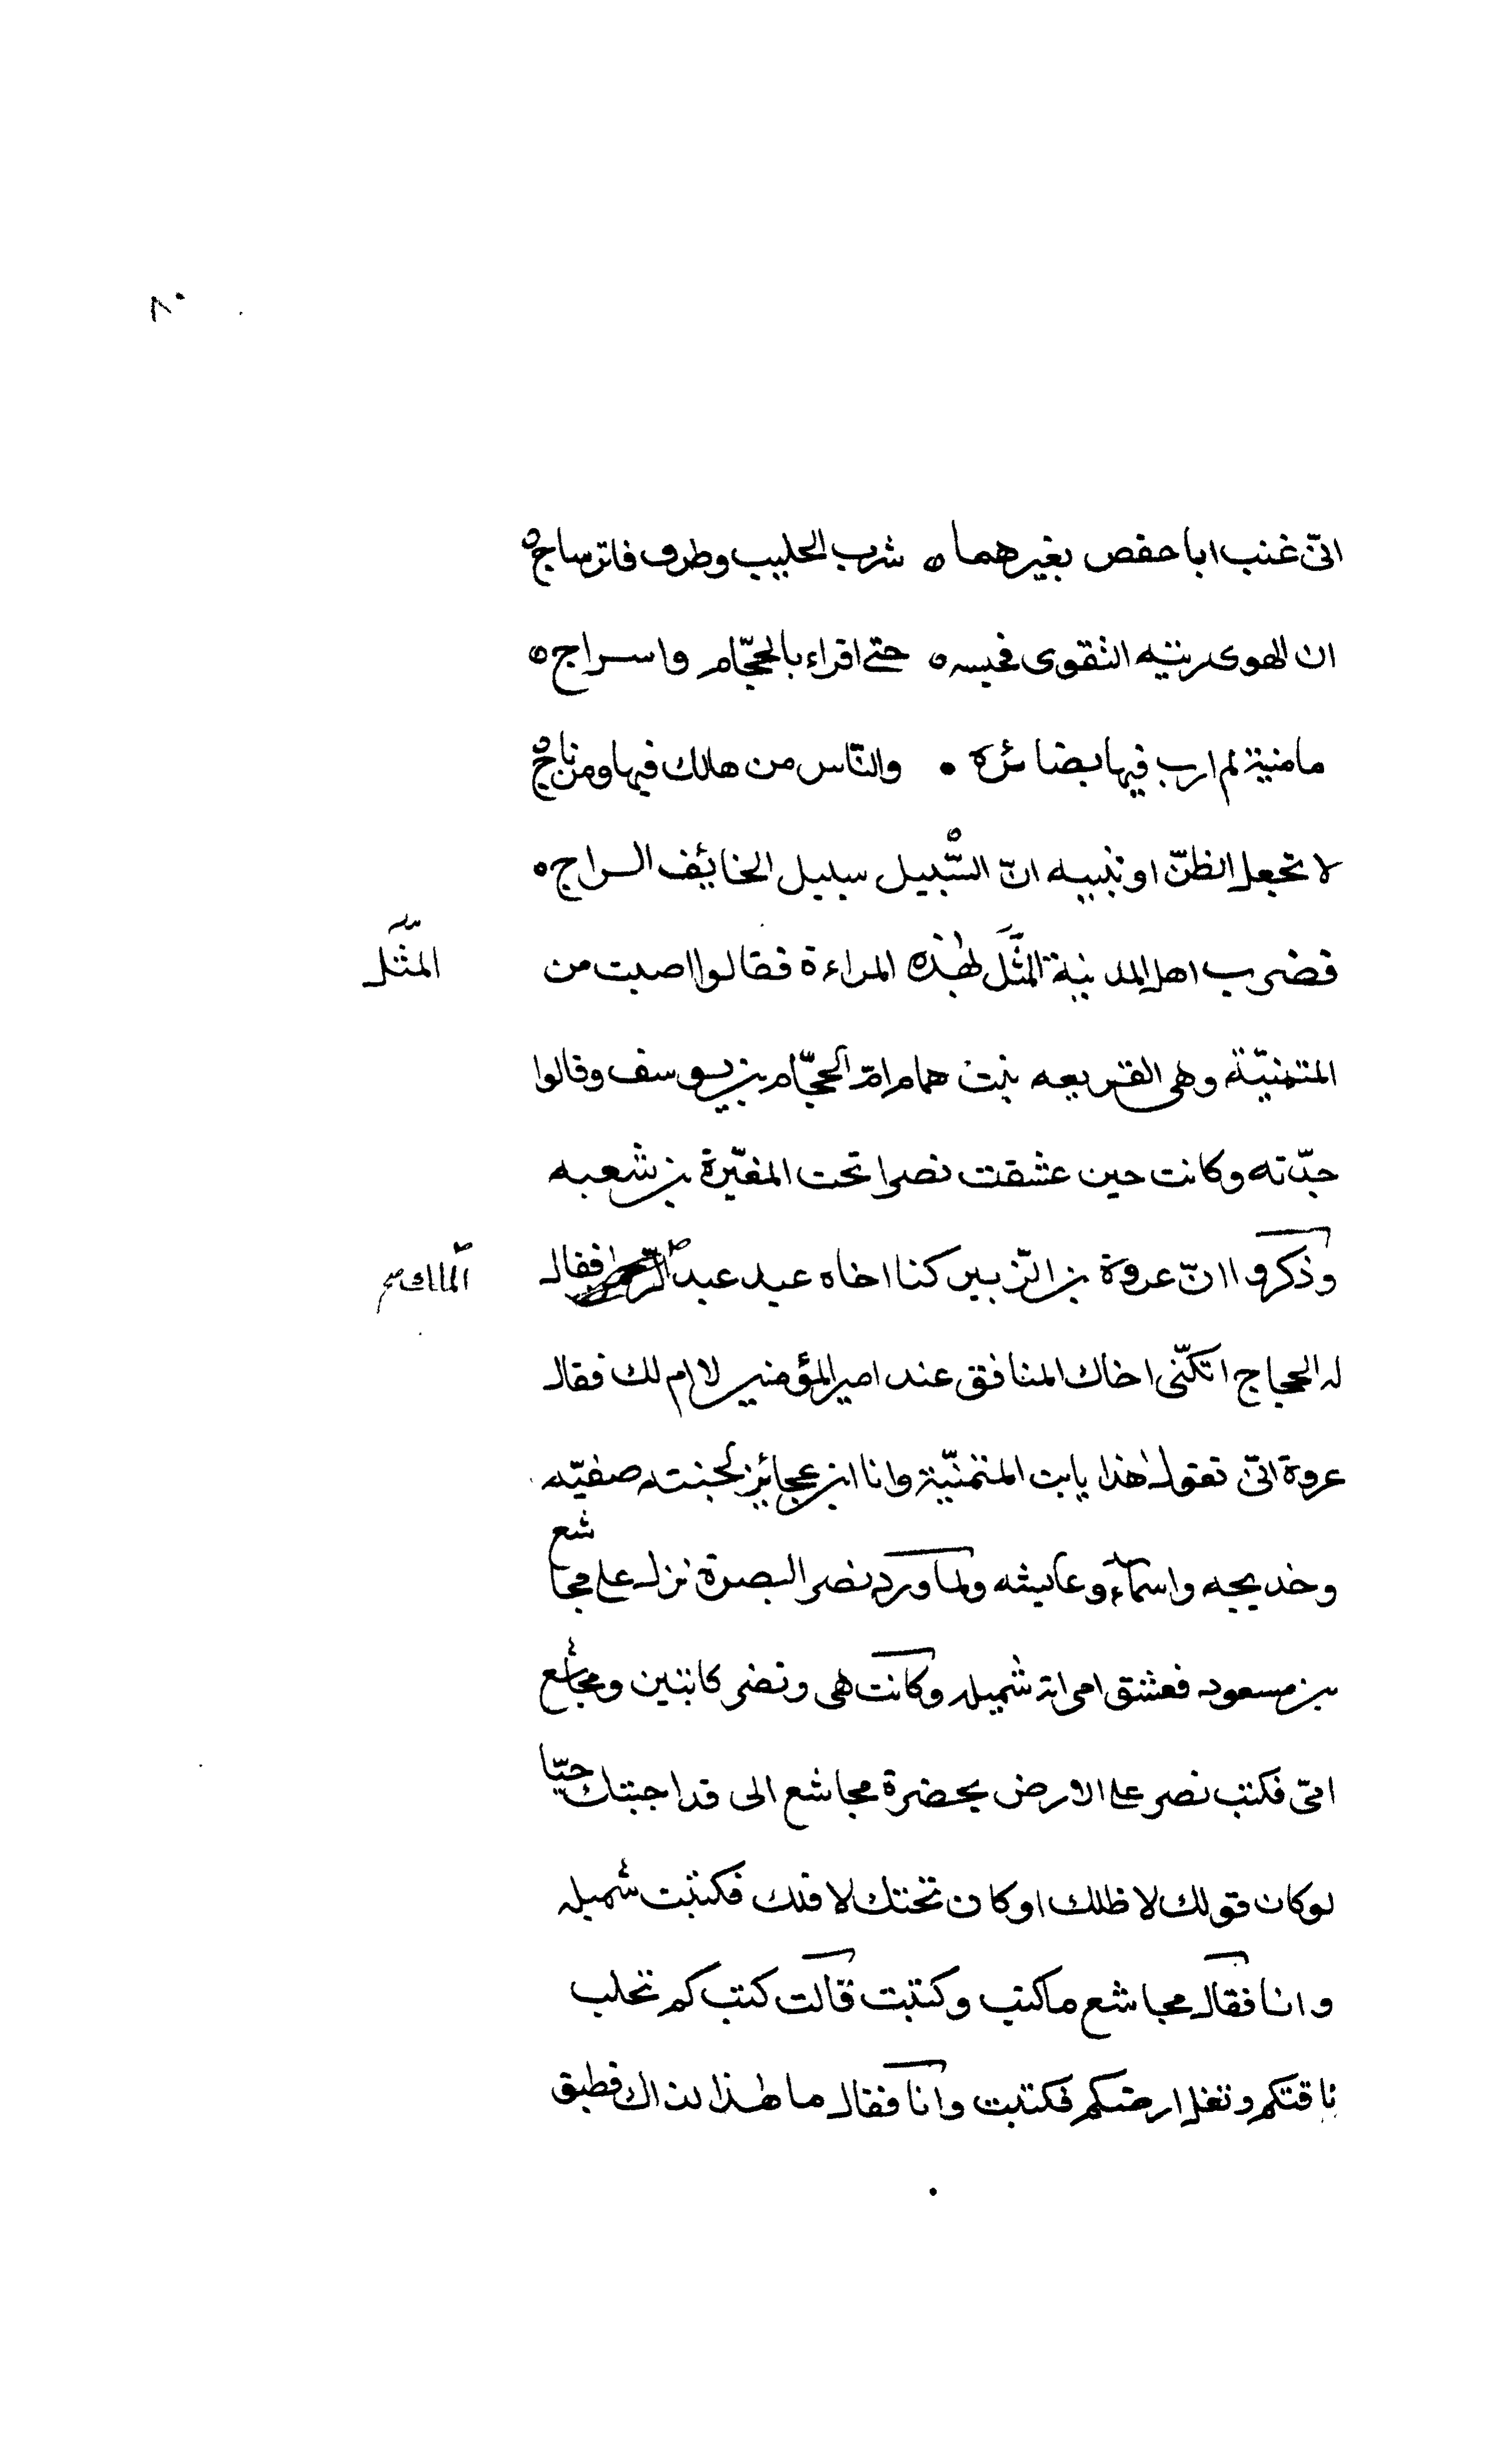 ٨٠
انّى غنب ابا حفص بغيرهما ه شرب الحليب وطرف فاتر ساج ه
ان الهوى رتبه التقوى فحبسه ه حتى اقراء بالحجّام واسراج ه
ما منية لم ارب فيها بضائرة ٠ والنّاس من هالك فيها ومن ناج ه
لا تجعل الظنّ او تبيبه انّ السّبيل سبيل الخائف الراج ه
فضرب اهل المدينية المثّل لهذه المراءة فقالوا اصبت من
المثّل
المتمنيّة وهى القريعه بنت همام امّ الحجّام بن يوسف وقالوا
جدّته وكانت حين عشقت نصرا تحت المغيّرة بن شعبه
وذكروا انّ عروة بن الزّبير كنا اخاه عبد عبد فقال
الملك
له الحجاج اتكنّى اخاك المنافق عند امير المؤمنين لا ام لك فقال
عروة انّى تقول هذا يابت المتمنّية وانا ابن عجايز لجنته صفيّه
وخديجه واسمآء وعايشه ولما ورد نصر البصرة نزل على مجاشع
بن مسعود فعشق امراته شميله وكانت هى ونصر كاتبين ومجاشع
امّى فكتب نصر على الارض بحضرة مجاشع الى قد احببتك حبّا
لو كان فوقك لاظلك او كان تحتك لاقلك فكتبت شميله
وانا فقال مجاشع ما كتب وكتبت قالت كتب كم تحلب
ناقتكم وتغل ارضكم فكتبت وانا فقال ما هذا لذاك فطبق